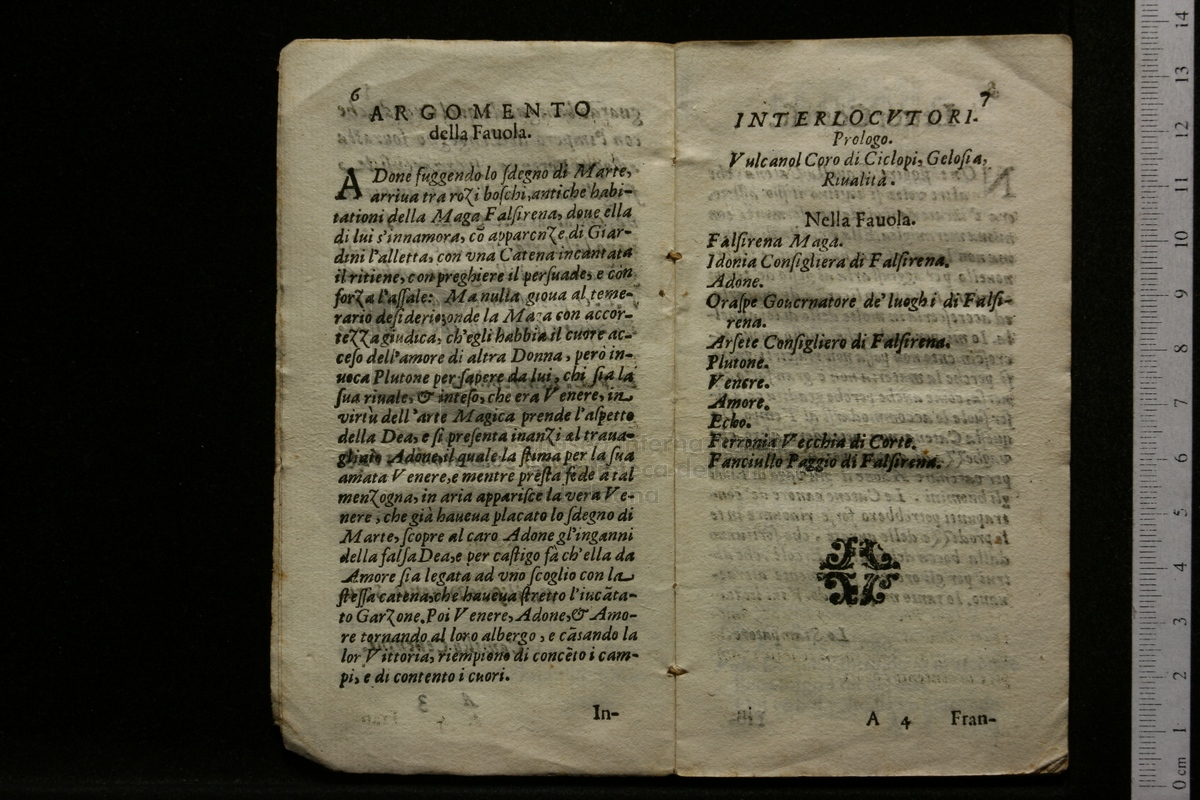 6
ARGOMENTO
della Fauola.
ADone fuggendo lo sdegno di Marte,
arriua tra rozi boschi, antiche habi-
tationi della Maga Falsirena, doue ella
di lui s'innamora, cō apparenze di Giar-
dini l'alletta, con vna Catena incantata
il ritiene, con preghiere il persuade, e con
forza l'assale: Ma nulla gioua al teme-
rario desiderio; onde la Maga con accor-
tezza giudica, ch'egli habbia il cuore ac-
ceso dell'amore di altra Donna, però in-
uoca Plutone per sapere da lui, chi sia la
sua riuale, & inteso, che era Venere, in
virtù dell'arte Magica prende l'aspetto
della Dea, e si presenta inanzi al traua-
gliato Adone, il quale la stima per la sua
amata Venere, e mentre presta fede a tal
menzogna, in aria apparisce la vera Ve-
nere, che già haueua placato lo sdegno di
Marte, scopre al caro Adone gl'inganni
della falsa Dea, e per castigo fà ch'ella da
Amore sia legata ad vno scoglio con la
stessa catena, che haueua stretto l'incāta-
to Garzone. Poi Venere, Adone, & Amo-
re tornando al loro albergo, e cāsando la
lor Vittoria, riempiono di concēto i cam-
pi, e di contento i cuori.
In-
7
INTERLOCVTORI.
Prologo.
Vulcanol Coro di Ciclopi, Gelosia,
Riualità.
Nella Fauola.
Falsirena Maga.
Idonia Consigliera di Falsirena.
Adone.
Oraspe Gouernatore de' luoghi di Falsi-
rena.
Arsete Consigliero di Falsirena.
Plutone.
Venere.
Amore.
Echo.
Ferronia Vecchia di Corte.
Fanciullo Paggio di Falsirena.
A 4 Fran-
0 cm 1 2 3 4 5 6 7 8 9 10 11 12 13 14